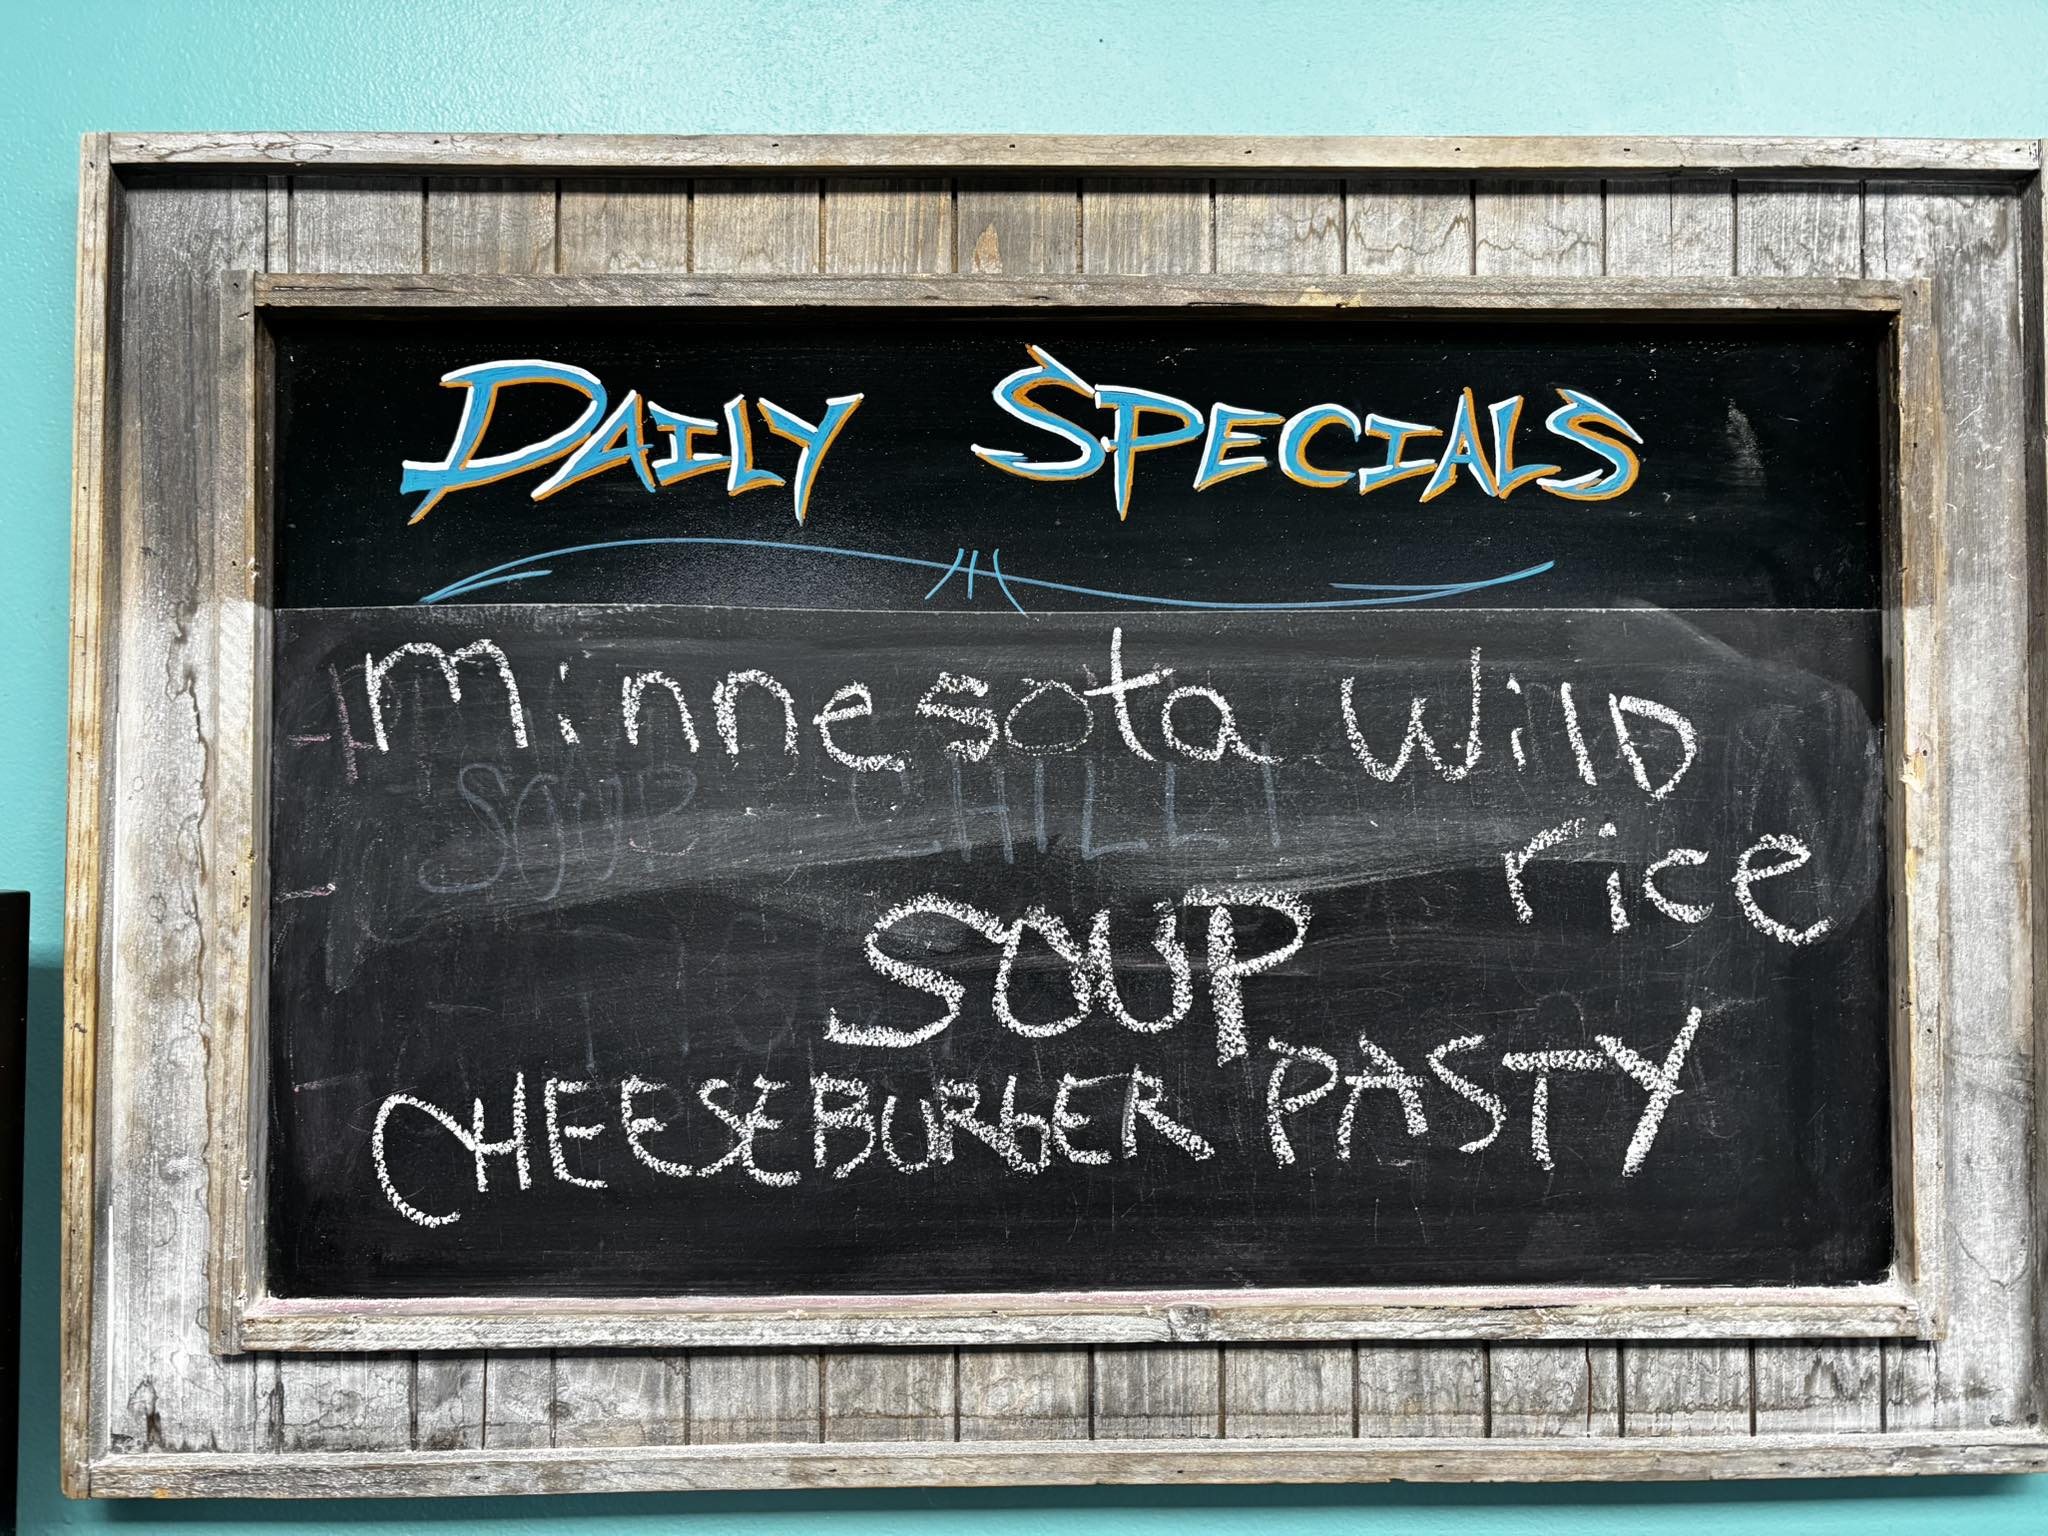 DAILY SPECIALS
minnesota wilD
rice
SOUP CHILLI
SOUP
CHEESEBURGER PASTY